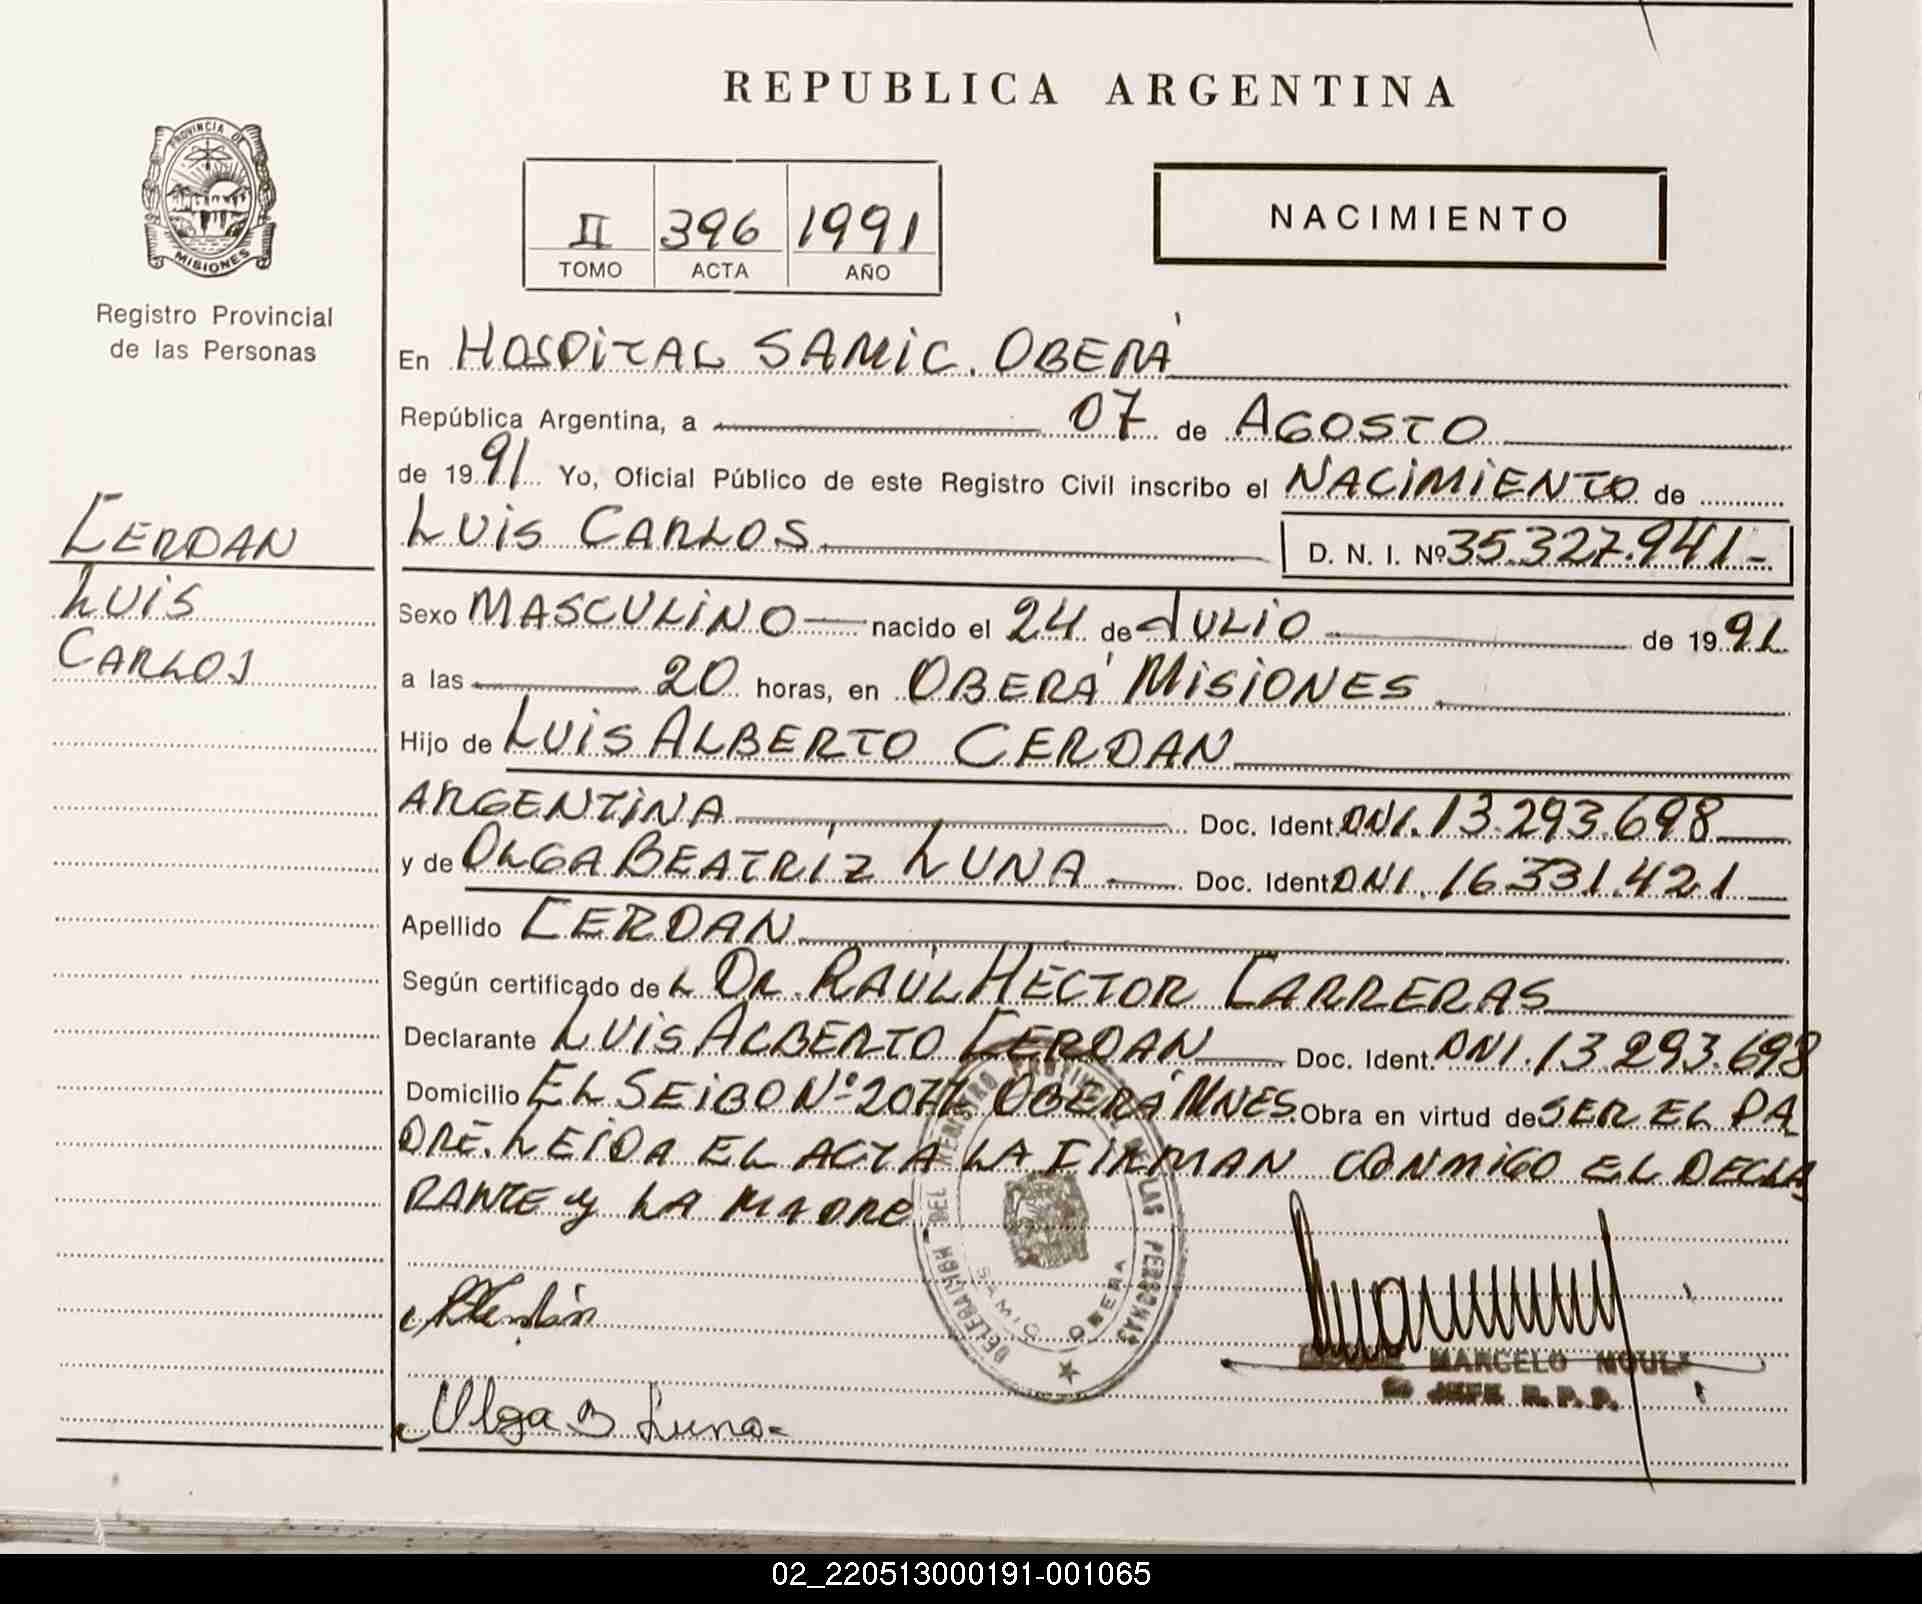 REPUBLICA ARGENTINA
PROVINCIA DE
MISIONES
Registro Provincial
de las Personas
II 396 1991
TOMO ACTA AÑO
NACIMIENTO
En HOSPITAL SAMIC. OBERÁ
República Argentina, a 07 de AGOSTO
de 1991 Yo, Oficial Público de este Registro Civil inscribo el NACIMIENTO de
CERDAN
LUIS
CARLOS
LUIS CARLOS D. N. I. Nº 35.327.941-
Sexo MASCULINO nacido el 24 de JULIO de 1991
a las 20 horas, en OBERÁ MISIONES
Hijo de LUIS ALBERTO CERDAN
ARGENTINA Doc. Ident. DNI. 13.293.698
y de OLGA BEATRÍZ LUNA Doc. Ident. DNI. 16.331.421
Apellido CERDAN
Según certificado de L DR. RAÚL HÉCTOR CARRERAS
Declarante LUIS ALBERTO CERDAN Doc. Ident. DNI. 13.293.698
Domicilio EL SEIBO Nº OBERÁ MNES. Obra en virtud de SER EL PA
DRE. LEIDA EL ACTA LA FIRMAN CONMIGO EL DECLA
RANTE y LA MADRE
DELEGACION DEL REGISTRO PROVINCIAL DE LAS PERSONAS
SAMIC OBERA
Olga B Luna
MARCELO
JEFE R. P. P.
02_220513000191-001065